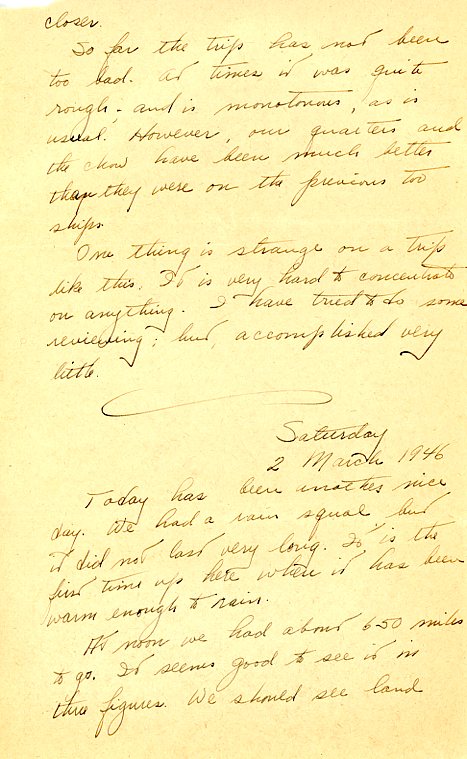 closer.
So far the trip has not been
too bad. At times it was quite
rough - and is monotonous, as is
usual. However, our quarters and
the chow have been much better
than they were on the previous too
ships.
One thing is strange on a trip
like this. It is very hard to concentrate
on anything. I have tried to do some
reviewing; but, accomplished very
little.
Saturday
2 March 1946
Today has been another nice
day. We had a rain squal but
it did not last very long. It is the
first time up here when it has been
warm enough to rain.
At noon we had about 650 miles
to go. It seems good to see it in
three figures. We should see land